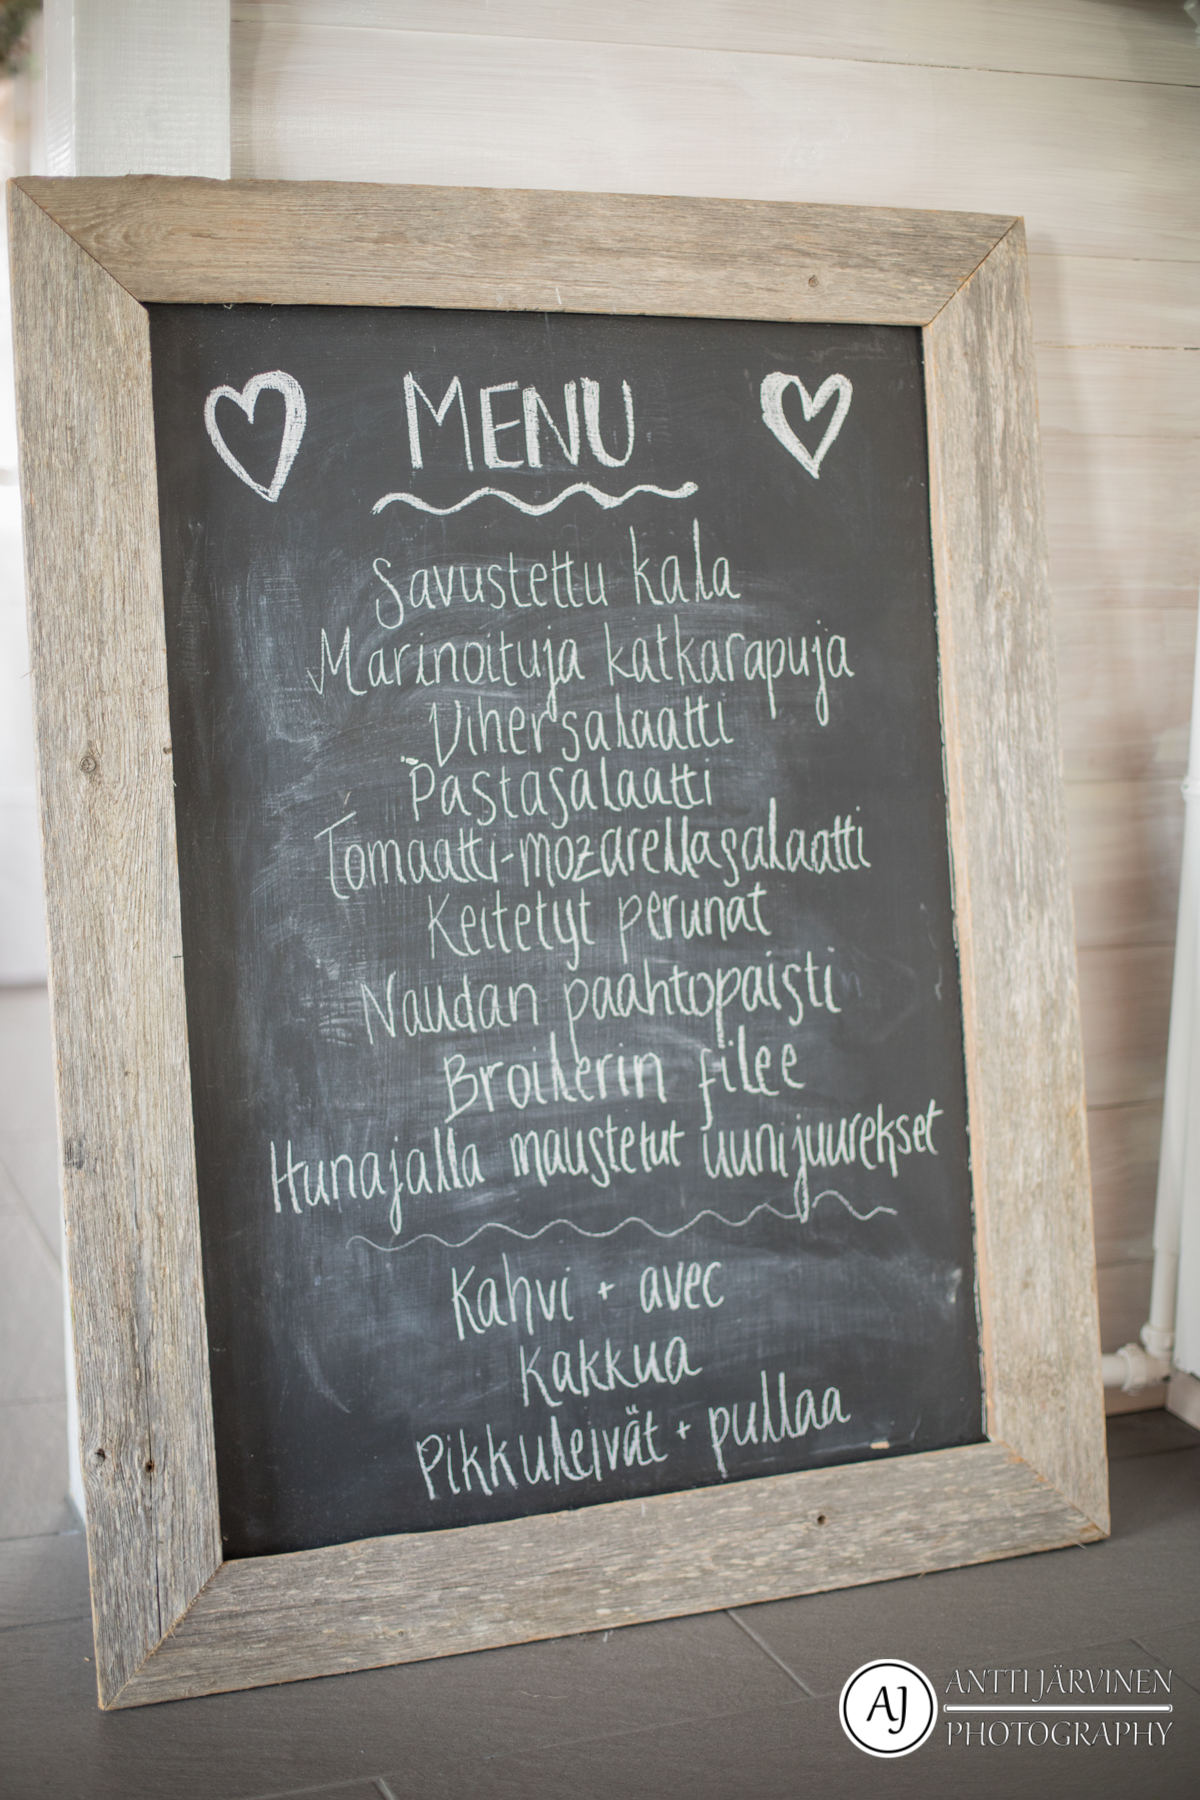 MENU
Savustettu kala
Marinoituja katkarapuja
Vihersalaatti
Pastasalaatti
Tomaatti-mozarellasalaatti
Keitetyt perunat
Naudan paahtopaisti
Broilerin filee
Hunajalla maustetut uunijuurekset
Kahvi + avec
Kakkua
Pikkuleivät + pullaa
AJ
ANTTI JÄRVINEN
PHOTOGRAPHY